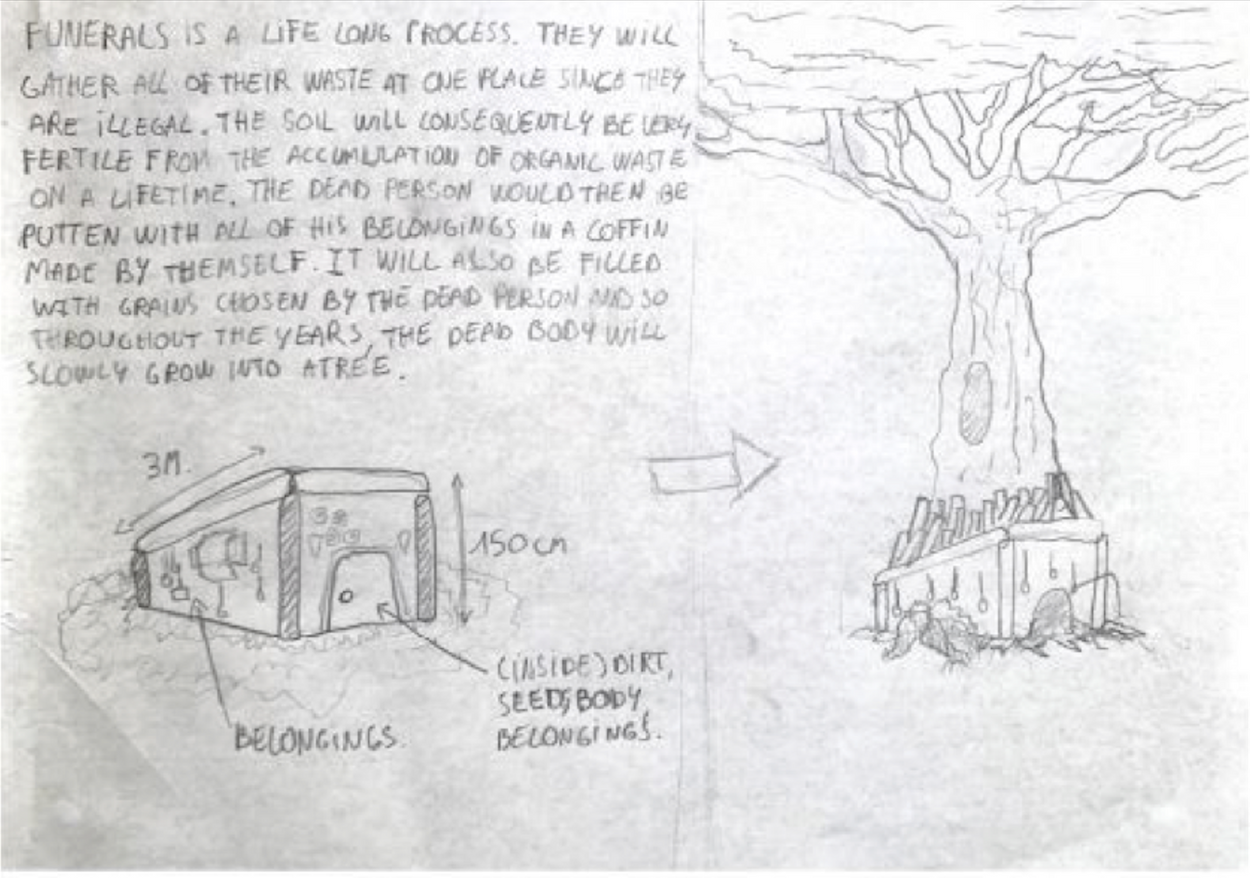 FUNERALS IS A LIFE LONG PROCESS. THEY WILL
GATHER ALL OF THEIR WASTE AT ONE PLACE SINCE THEY
ARE ILLEGAL. THE SOIL WILL CONSEQUENTLY BE VERY
FERTILE FROM THE ACCUMULATION OF ORGANIC WASTE
ON A LIFETIME. THE DEAD PERSON WOULD THEN BE
PUTTEN WITH ALL OF HIS BELONGINGS IN A COFFIN
MADE BY THEMSELF. IT WILL ALSO BE FILLED
WITH GRAINS CHOSEN BY THE DEAD PERSON AND SO
THROUGHOUT THE YEARS, THE DEAD BODY WILL
SLOWLY GROW INTO A TREE.
3M.
150 cm
(INSIDE) DIRT,
SEEDS, BODY,
BELONGINGS.
BELONGINGS.